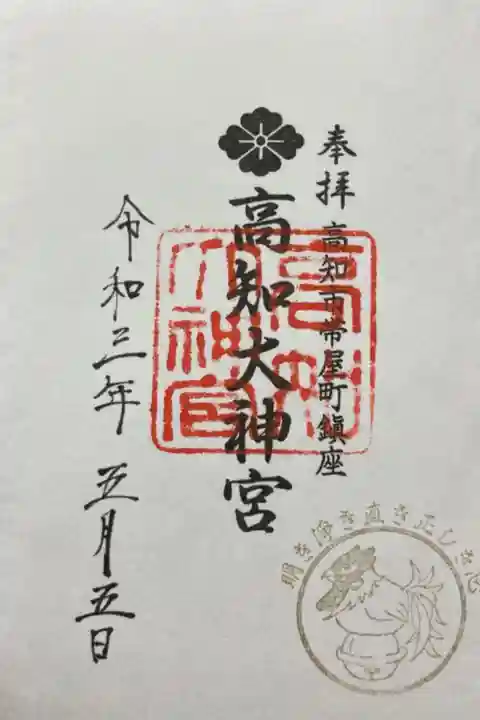 奉拝 高知市帯屋町鎮座
高知大神宮
令和三年 五月五日
高知大神宮
明き浄き直き正しき心